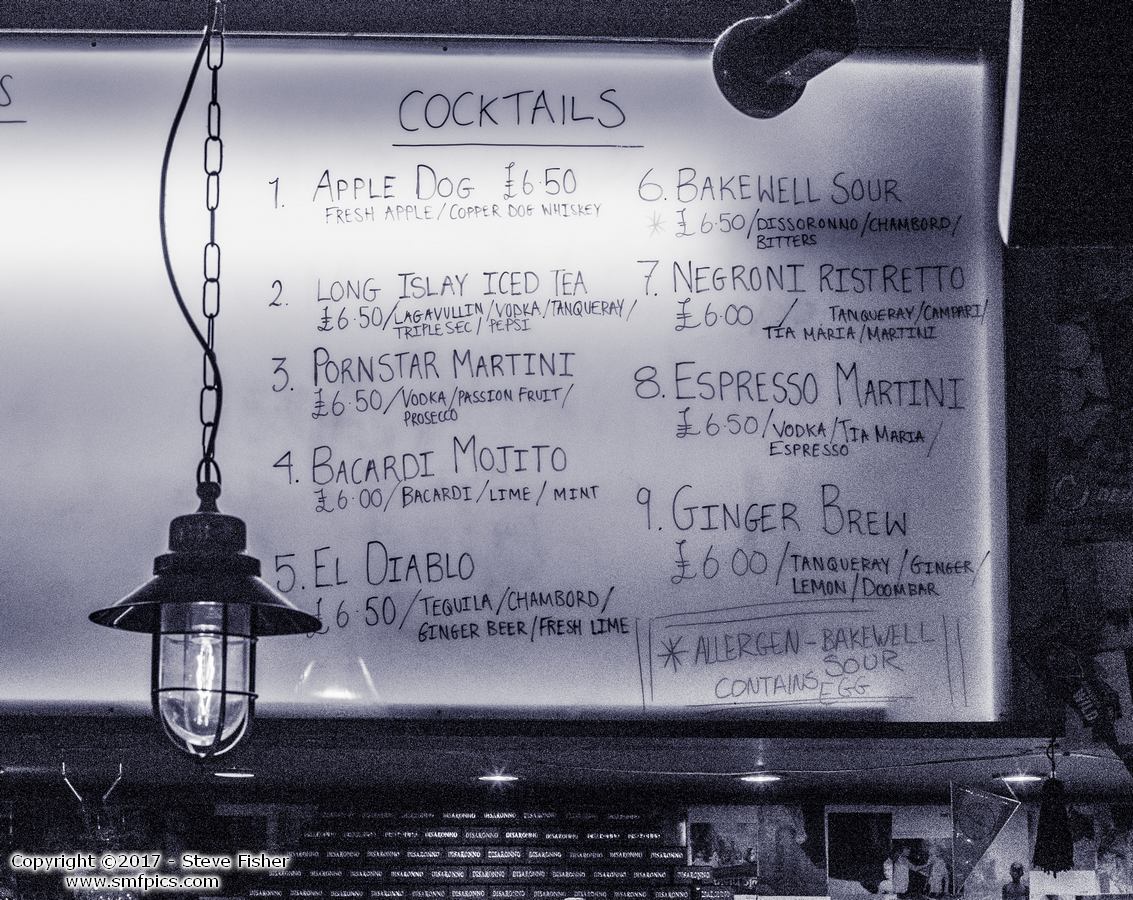 S
COCKTAILS
1. APPLE DOG £6.50
FRESH APPLE/COPPER DOG WHISKEY
2. LONG ISLAY ICED TEA
£6.50/LAGAVULLIN/VODKA/TANQUERAY/
TRIPLE SEC/PEPSI
3. PORNSTAR MARTINI
£6.50/VODKA/PASSION FRUIT/
PROSECCO
4. BACARDI MOJITO
£6.00/BACARDI/LIME/MINT
5. EL DIABLO
£6.50/TEQUILA/CHAMBORD/
GINGER BEER/FRESH LIME
6. BAKEWELL SOUR
* £6.50/DISSORONNO/CHAMBORD/
BITTERS
7. NEGRONI RISTRETTO
£6.00 / TANQUERAY/CAMPARI/
TIA MARIA/MARTINI
8. ESPRESSO MARTINI
£6.50/VODKA/TIA MARIA/
ESPRESSO
9. GINGER BREW
£6.00/TANQUERAY/GINGER/
LEMON/DOOMBAR
* ALLERGEN - BAKEWELL
SOUR
CONTAINS EGG
DISARONNO
Copyright ©2017 - Steve Fisher
www.smfpics.com